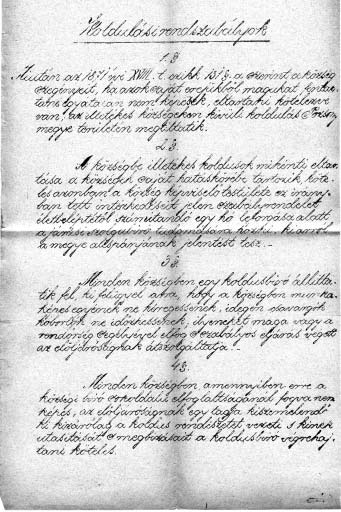 Koldulási rendszabályok
1. §
Miután az 1871 évi XVIII. t. czikk 131 §-a szerint a község
szegényeit, ha azok saját erejükből magukat
nem képesek, eltartani kötelezve
van: az illetékes községeken kívüli koldulás Pozsony
megye területén megtiltatik.
2. §
A községbe illetékes koldusok mikénti eltar-
tása a községek saját hatáskörébe tartozik, köte-
les azonban a község képviselőtestülete ez irány-
ban tett intézkedéseit jelen szabályrendelet
életbeléptétől számítandó egy hó lefolyása alatt
a járási szolgabíró tudomására hozni, ki arról
a megye alispánjának jelentést tesz.
3. §
Minden községben egy koldusbíró állítta-
tik fel, ki felügyel arra, hogy a községben munka
képes egyének ne kéregessenek, idegen csavargók
kóborlók ne időzhessenek, ilyeneket maga vagy a
rendőrség segélyével elfog s szabályos eljárás végett
az elöljáróságnak átszolgáltatja.
4. §
Minden községben amennyiben erre a
községi bíró sokoldalú elfoglaltságánál fogva nem
képes, az elöljáróságnak egy tagja kiszemelendő
ki kizárólag a koldus rendészetet vezeti s kinek
utasításait s megbízásait a koldusbíró végrehaj-
tani köteles.